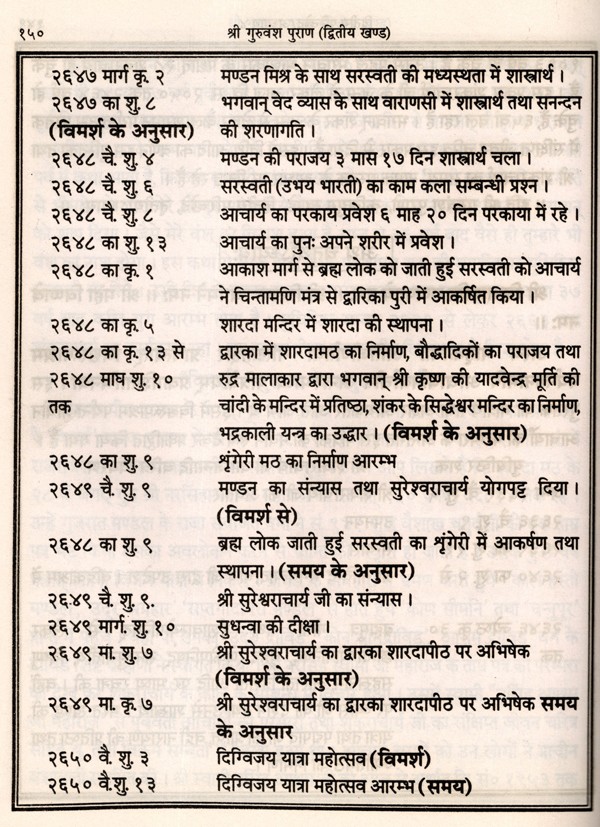 १५० श्री गुरुवंश पुराण (द्वितीय खण्ड)
२६४७ मार्ग कृ. २ मण्डन मिश्र के साथ सरस्वती की मध्यस्थता में शास्त्रार्थ ।
२६४७ का शु. ८ भगवान् वेद व्यास के साथ वाराणसी में शास्त्रार्थ तथा सनन्दन
(विमर्श के अनुसार) की शरणागति ।
२६४८ चै. शु. ४ मण्डन की पराजय ३ मास १७ दिन शास्त्रार्थ चला ।
२६४८ चै. शु. ६ सरस्वती (उभय भारती) का काम कला सम्बन्धी प्रश्न ।
२६४८ चै. शु. ८ आचार्य का परकाय प्रवेश ६ माह २० दिन परकाया में रहे ।
२६४८ का शु. १३ आचार्य का पुनः अपने शरीर में प्रवेश ।
२६४८ का कृ. १ आकाश मार्ग से ब्रह्म लोक को जाती हुई सरस्वती को आचार्य
ने चिन्तामणि मंत्र से द्वारिका पुरी में आकर्षित किया ।
२६४८ का कृ. ५ शारदा मन्दिर में शारदा की स्थापना ।
२६४८ का कृ. १३ से द्वारका में शारदामठ का निर्माण, बौद्धादिकों का पराजय तथा
२६४८ माघ शु. १० रुद्र मालाकार द्वारा भगवान् श्री कृष्ण की यादवेन्द्र मूर्ति की
तक चांदी के मन्दिर में प्रतिष्ठा, शंकर के सिद्धेश्वर मन्दिर का निर्माण,
भद्रकाली यन्त्र का उद्धार । (विमर्श के अनुसार)
२६४८ का शु. ९ श्रृंगेरी मठ का निर्माण आरम्भ
२६४९ चै. शु. ९ मण्डन का संन्यास तथा सुरेश्वराचार्य योगपट्ट दिया ।
(विमर्श से)
२६४८ का शु. ९ ब्रह्म लोक जाती हुई सरस्वती का श्रृंगेरी में आकर्षण तथा
स्थापना । (समय के अनुसार)
२६४९ चै. शु. ९ श्री सुरेश्वराचार्य जी का संन्यास ।
२६४९ मार्ग. शु. १० सुधन्वा की दीक्षा ।
२६४९ मा. शु. ७ श्री सुरेश्वराचार्य का द्वारका शारदापीठ पर अभिषेक
(विमर्श के अनुसार)
२६४९ मा. कृ. ७ श्री सुरेश्वराचार्य का द्वारका शारदापीठ पर अभिषेक समय
के अनुसार
२६५० वै. शु. ३ दिग्विजय यात्रा महोत्सव (विमर्श)
२६५० वै.शु. १३ दिग्विजय यात्रा महोत्सव आरम्भ (समय)